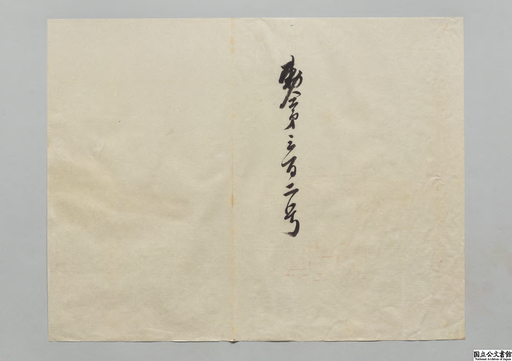 勅令第三百二号
国立公文書館
National Archives of Japan